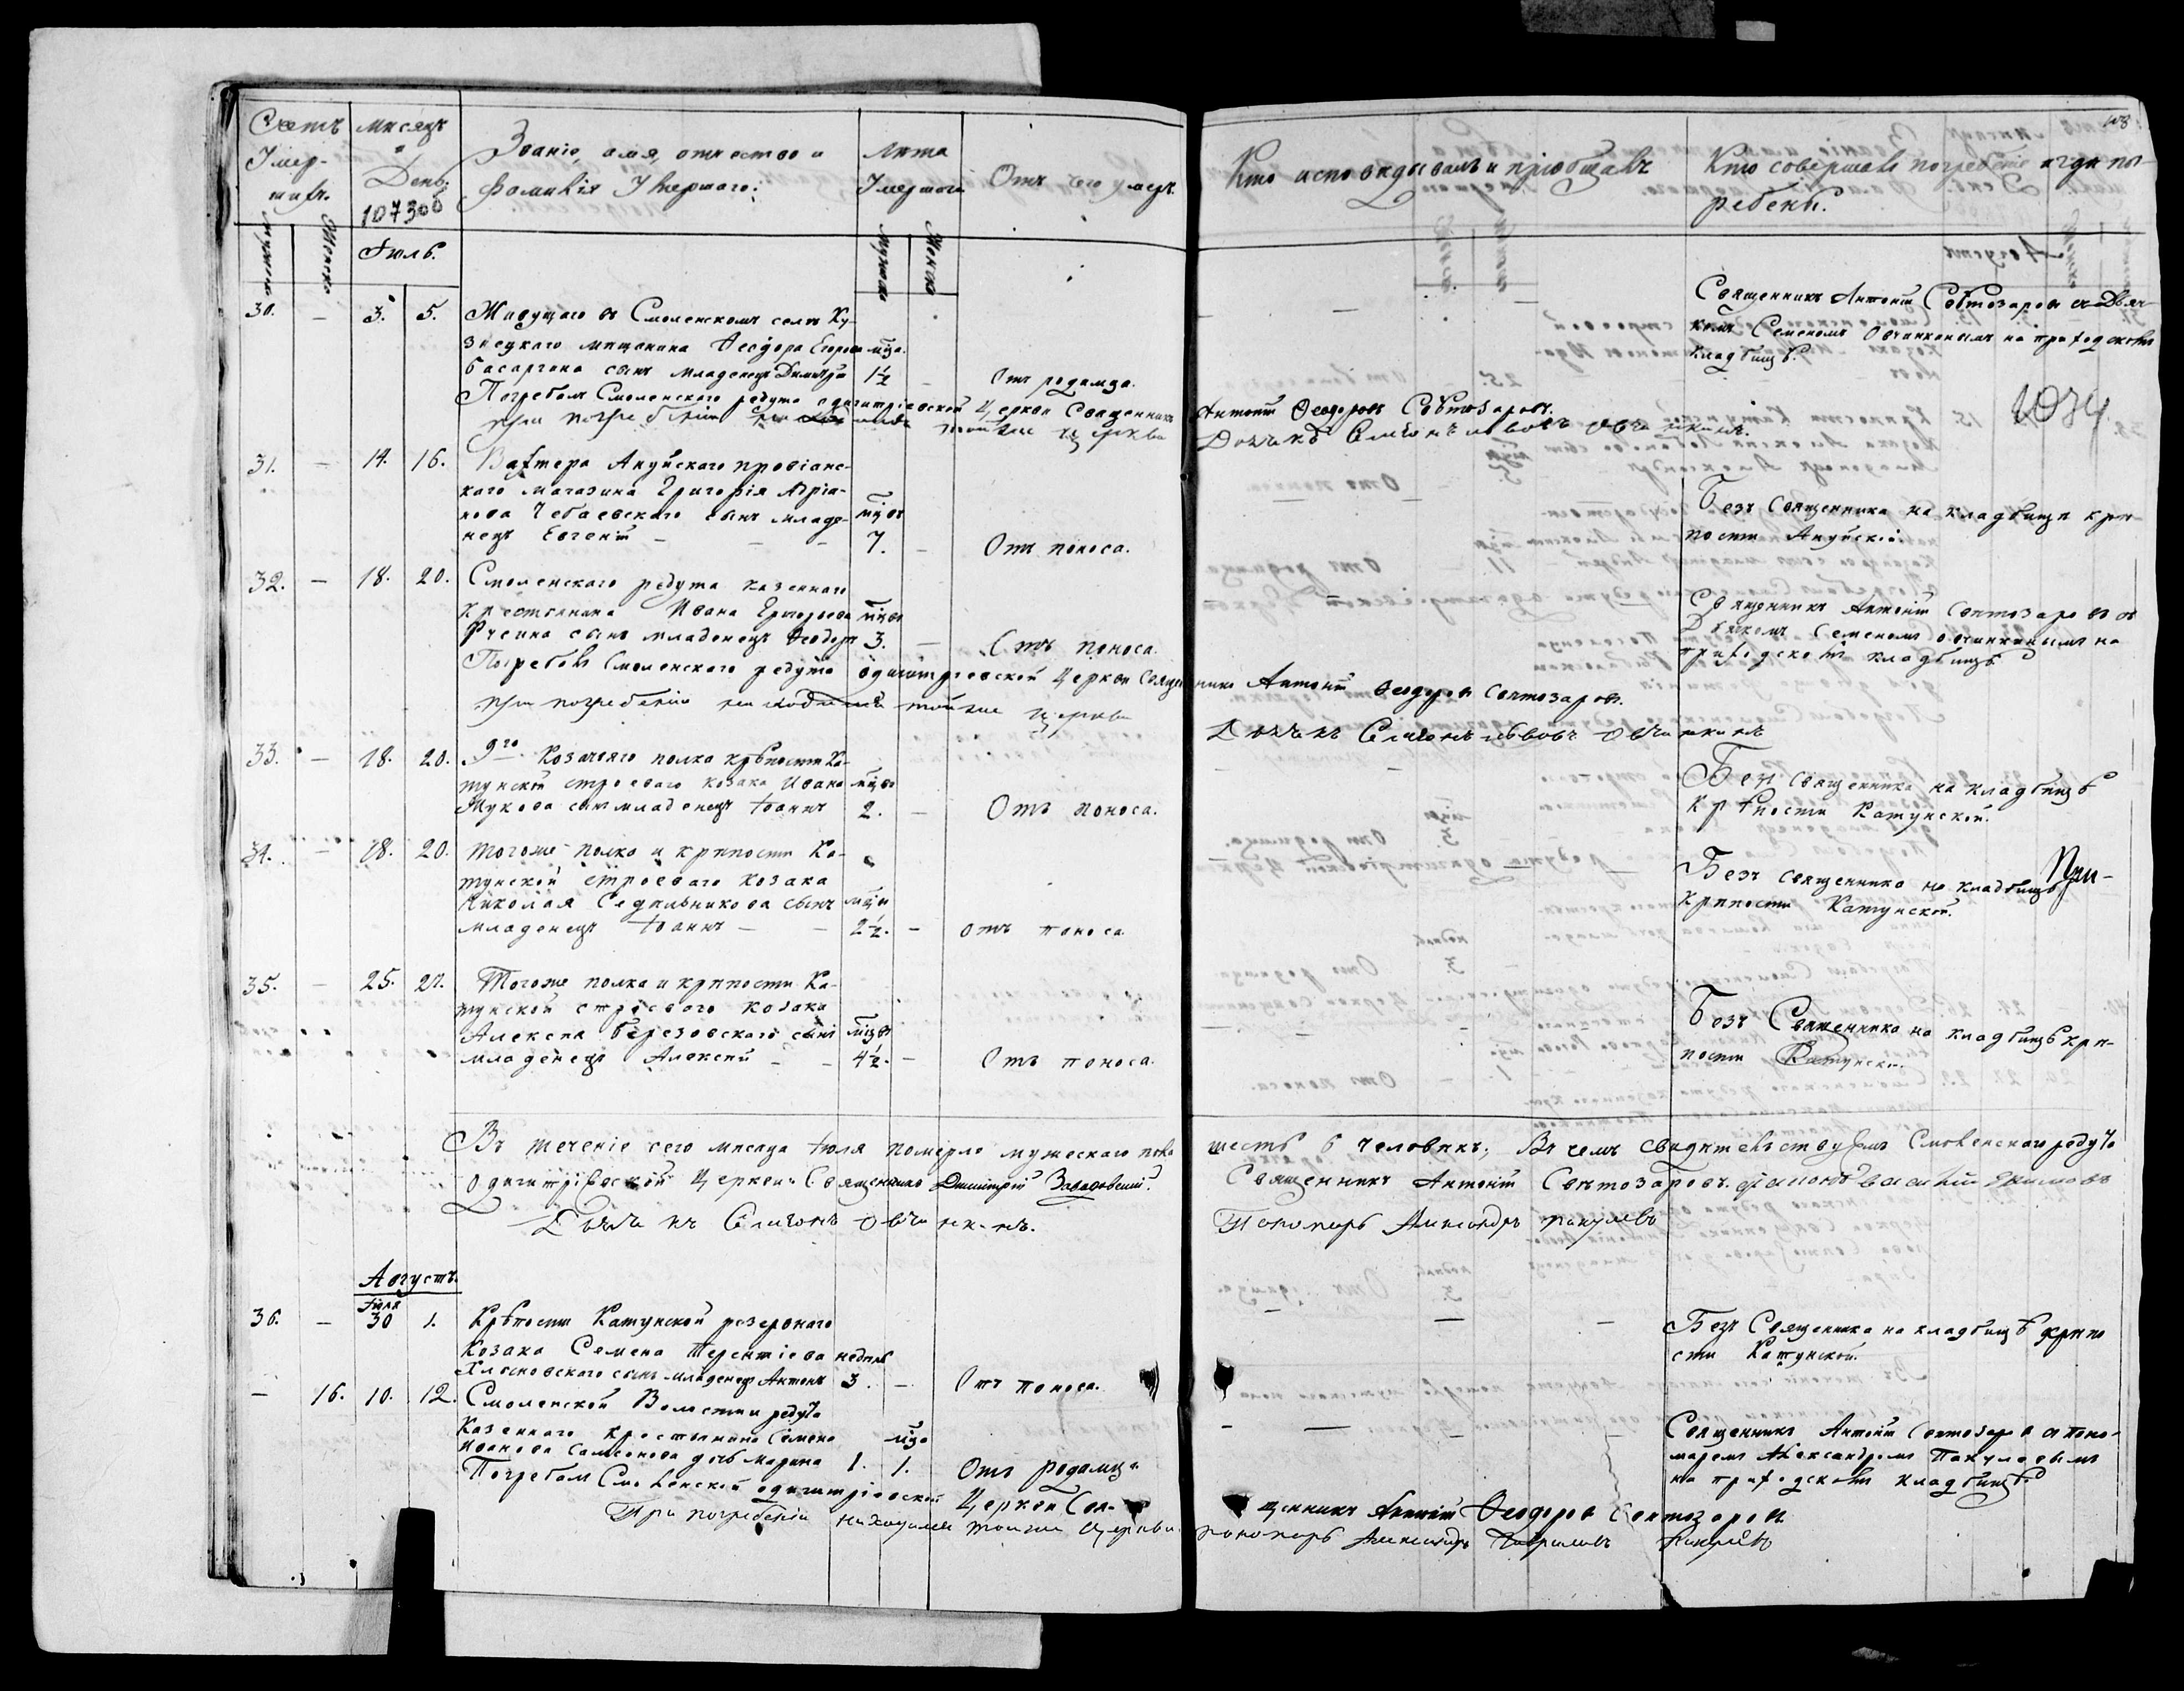 Счетъ Умер-шихъ.
Мѣсяцъ и День.
107306
Званіе, имя, отчество и фамилія Умершаго:
Лѣта Умершаго
Отъ чего умеръ.
Кто исповѣдывалъ и пріобщалъ
Кто совершалъ погребеніе и гдѣ по-
гребены.
108
Мужеска
Женска
Іюль.
Мужеска
Женска
30. – 3. 5. Живущаго въ Смоленскомъ селѣ Ку-
знецкаго мѣщанина Ѳеодора Егорова мѣца.
Басаргина сынъ младенецъ Димитрій 1½ – Отъ родимца.
Священникъ Антоній Свѣтозаровъ съ Дьяч-
комъ Семеномъ Овчинкинымъ на приходскомъ
кладбищѣ.
Погребалъ Смоленского редута одигитріевской Церкви Священникъ Антоній Ѳеодоровъ Свѣтозаровъ.
при погребеніи тойже церкви Дьячекъ Симеонъ Львовъ Овчинкинъ.
1034
31. – 14. 16. Вахтера Ануйскаго провіанс-
каго магазина Григорія Адріа-
нова Чебаевскаго сынъ младе- мѣцовъ
нецъ Евгеній – – – 7. – Отъ поноса.
Безъ Священника на кладбищѣ крѣ-
пости Ануйской.
32. – 18. 20. Смоленскаго редута казеннаго
крестьянина Ивана Григорьева мѣцовъ
сынъ младенецъ Ѳеодоръ 3. – Отъ поноса.
Священникъ Антоній Свѣтозаровъ съ
Дьячкомъ Семеномъ Овчинкинымъ на
приходскомъ кладбищѣ
Погребалъ Смоленского редута Одигитріевской Церкви Священникъ Антоній Ѳеодоровъ Свѣтозаровъ.
при погребеніи находился тойже церкви Дьячекъ Симеонъ Львовъ Овчинкинъ
33. – 18. 20. 9го Козачьяго полка крѣпости Ка-
тунской строеваго козака Ивана мѣцовъ
Жукова сынъ младенецъ Іоаннъ 2. – Отъ поноса.
Безъ Священника на кладбищѣ
крѣпости Катунской.
34. – 18. 20. Тогоже полка и крѣпости Ка-
тунской строеваго козака
Николая Седельникова сынъ мѣцовъ
младенецъ Іоаннъ – – 2½. – отъ поноса
Безъ священника на кладбищѣ
крѣпости Катунской.
При-
35. – 25. 27. Тогоже полка и крѣпости Ка-
тунской строеваго козака
Алексѣя Березовскаго сынъ мѣцовъ
младенецъ Алексѣй – – 4½. – Отъ поноса.
Безъ Священника на кладбищѣ крѣ-
пости Катунской.
Въ теченіе сего мѣсяца Іюля померло мужескаго пола шесть 6 человѣкъ; Въ чемъ свидѣтельствуемъ Смоленскаго редута
Одигитріевской Церкви Священникъ Димитрій Завадовскій. Священникъ Антоній Свѣтозаровъ. діаконъ Василій Екимовъ
Дьячекъ Симеонъ Овчинкинъ. Пономарь Александръ Пакулевъ
Августъ.
Іюля
36. – 30 1. Крѣпости Катунской резервнаго
козака Семена Терентіева недѣль
Хлыновскаго сынъ младенецъ Антонъ 3. – Отъ поноса.
Безъ Священника на кладбищѣ крѣпо
сти Катунской.
– 16. 10. 12. Смоленской Волости и редута
казеннаго крестьянина Семена мѣца
Иванова Самсонова дочь Марина 1. 1. Отъ родимца
Священникъ Антоній Свѣтозаровъ съ поно-
маремъ Александромъ Пакулевымъ
на приходскомъ кладбищѣ
Погребалъ Смоленской одигитріевской Церкви Свя-щенникъ Антоній Ѳеодоровъ Свѣтозаровъ.
При погребеніи находился тойже Церкви пономарь Александръ Гавриловъ Пакулевъ